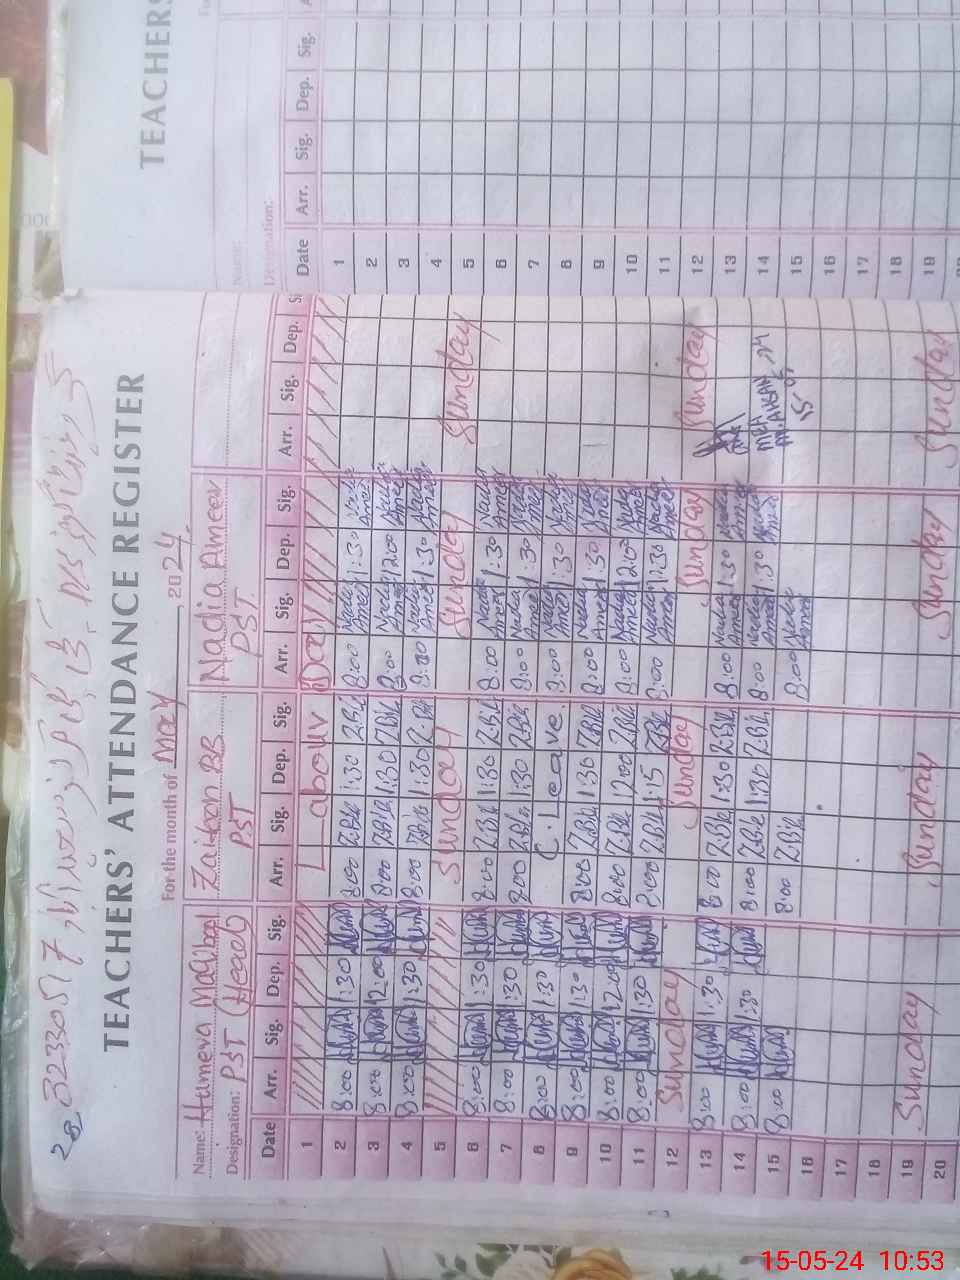 32330517
TEACHERS' ATTENDANCE REGISTER
For the month of May, 2024.
Name: Humera Maqbool Zaitoon BB Nadia Ameer
Designation: PST (Head) PST PST
Date Arr. Sig. Dep. Sig. Arr. Sig. Dep. Sig. Arr. Sig. Dep. Sig. Arr. Sig. Dep. S
1 Labour Day
2 8:00 1:30 8:00 Z.Bibi 1:30 Z.Bibi 8:00 Nadia Ameer 1:30 Nadia Ameer
3 8:00 12:00 8:00 Z.Bibi 1:30 Z.Bibi 8:00 Nadia Ameer 12:00 Nadia Ameer
4 8:00 1:30 8:00 Z.Bibi 1:30 Z.Bibi 8:00 Nadia Ameer 1:30 Nadia Ameer
5 Sunday Sunday Sunday
6 8:00 1:30 8:00 Z.Bibi 1:30 Z.Bibi 8:00 Nadia Ameer 1:30 Nadia Ameer
7 8:00 1:30 8:00 Z.Bibi 1:30 Z.Bibi 8:00 Nadia Ameer 1:30 Nadia Ameer
8 8:00 1:30 C. leave. 8:00 Nadia Ameer 1:30 Nadia Ameer
9 8:00 1:30 8:00 Z.Bibi 1:30 Z.Bibi 8:00 Nadia Ameer 1:30 Nadia Ameer
10 8:00 12:00 8:00 Z.Bibi 12:00 Z.Bibi 8:00 Nadia Ameer 12:00 Nadia Ameer
11 8:00 1:30 8:00 Z.Bibi 1:15 Z.Bibi 8:00 Nadia Ameer 1:30 Nadia Ameer
12 Sunday Sunday Sunday Sunday
13 8:00 1:30 8:00 Z.Bibi 1:30 Z.Bibi 8:00 Nadia Ameer 1:30 Nadia Ameer
14 8:00 1:30 8:00 Z.Bibi 1:30 Z.Bibi 8:00 Nadia Ameer 1:30 Nadia Ameer
15 8:00 8:00 Z.Bibi 8:00 Nadia Ameer
16
17
18
19 Sunday Sunday Sunday Sunday
20
TEACHERS
Name:
Designation:
Date Arr. Sig. Dep. Sig. A
1
2
3
4
5
6
7
8
9
10
11
12
13
14
15
16
17
18
19
15-05-24 10:53